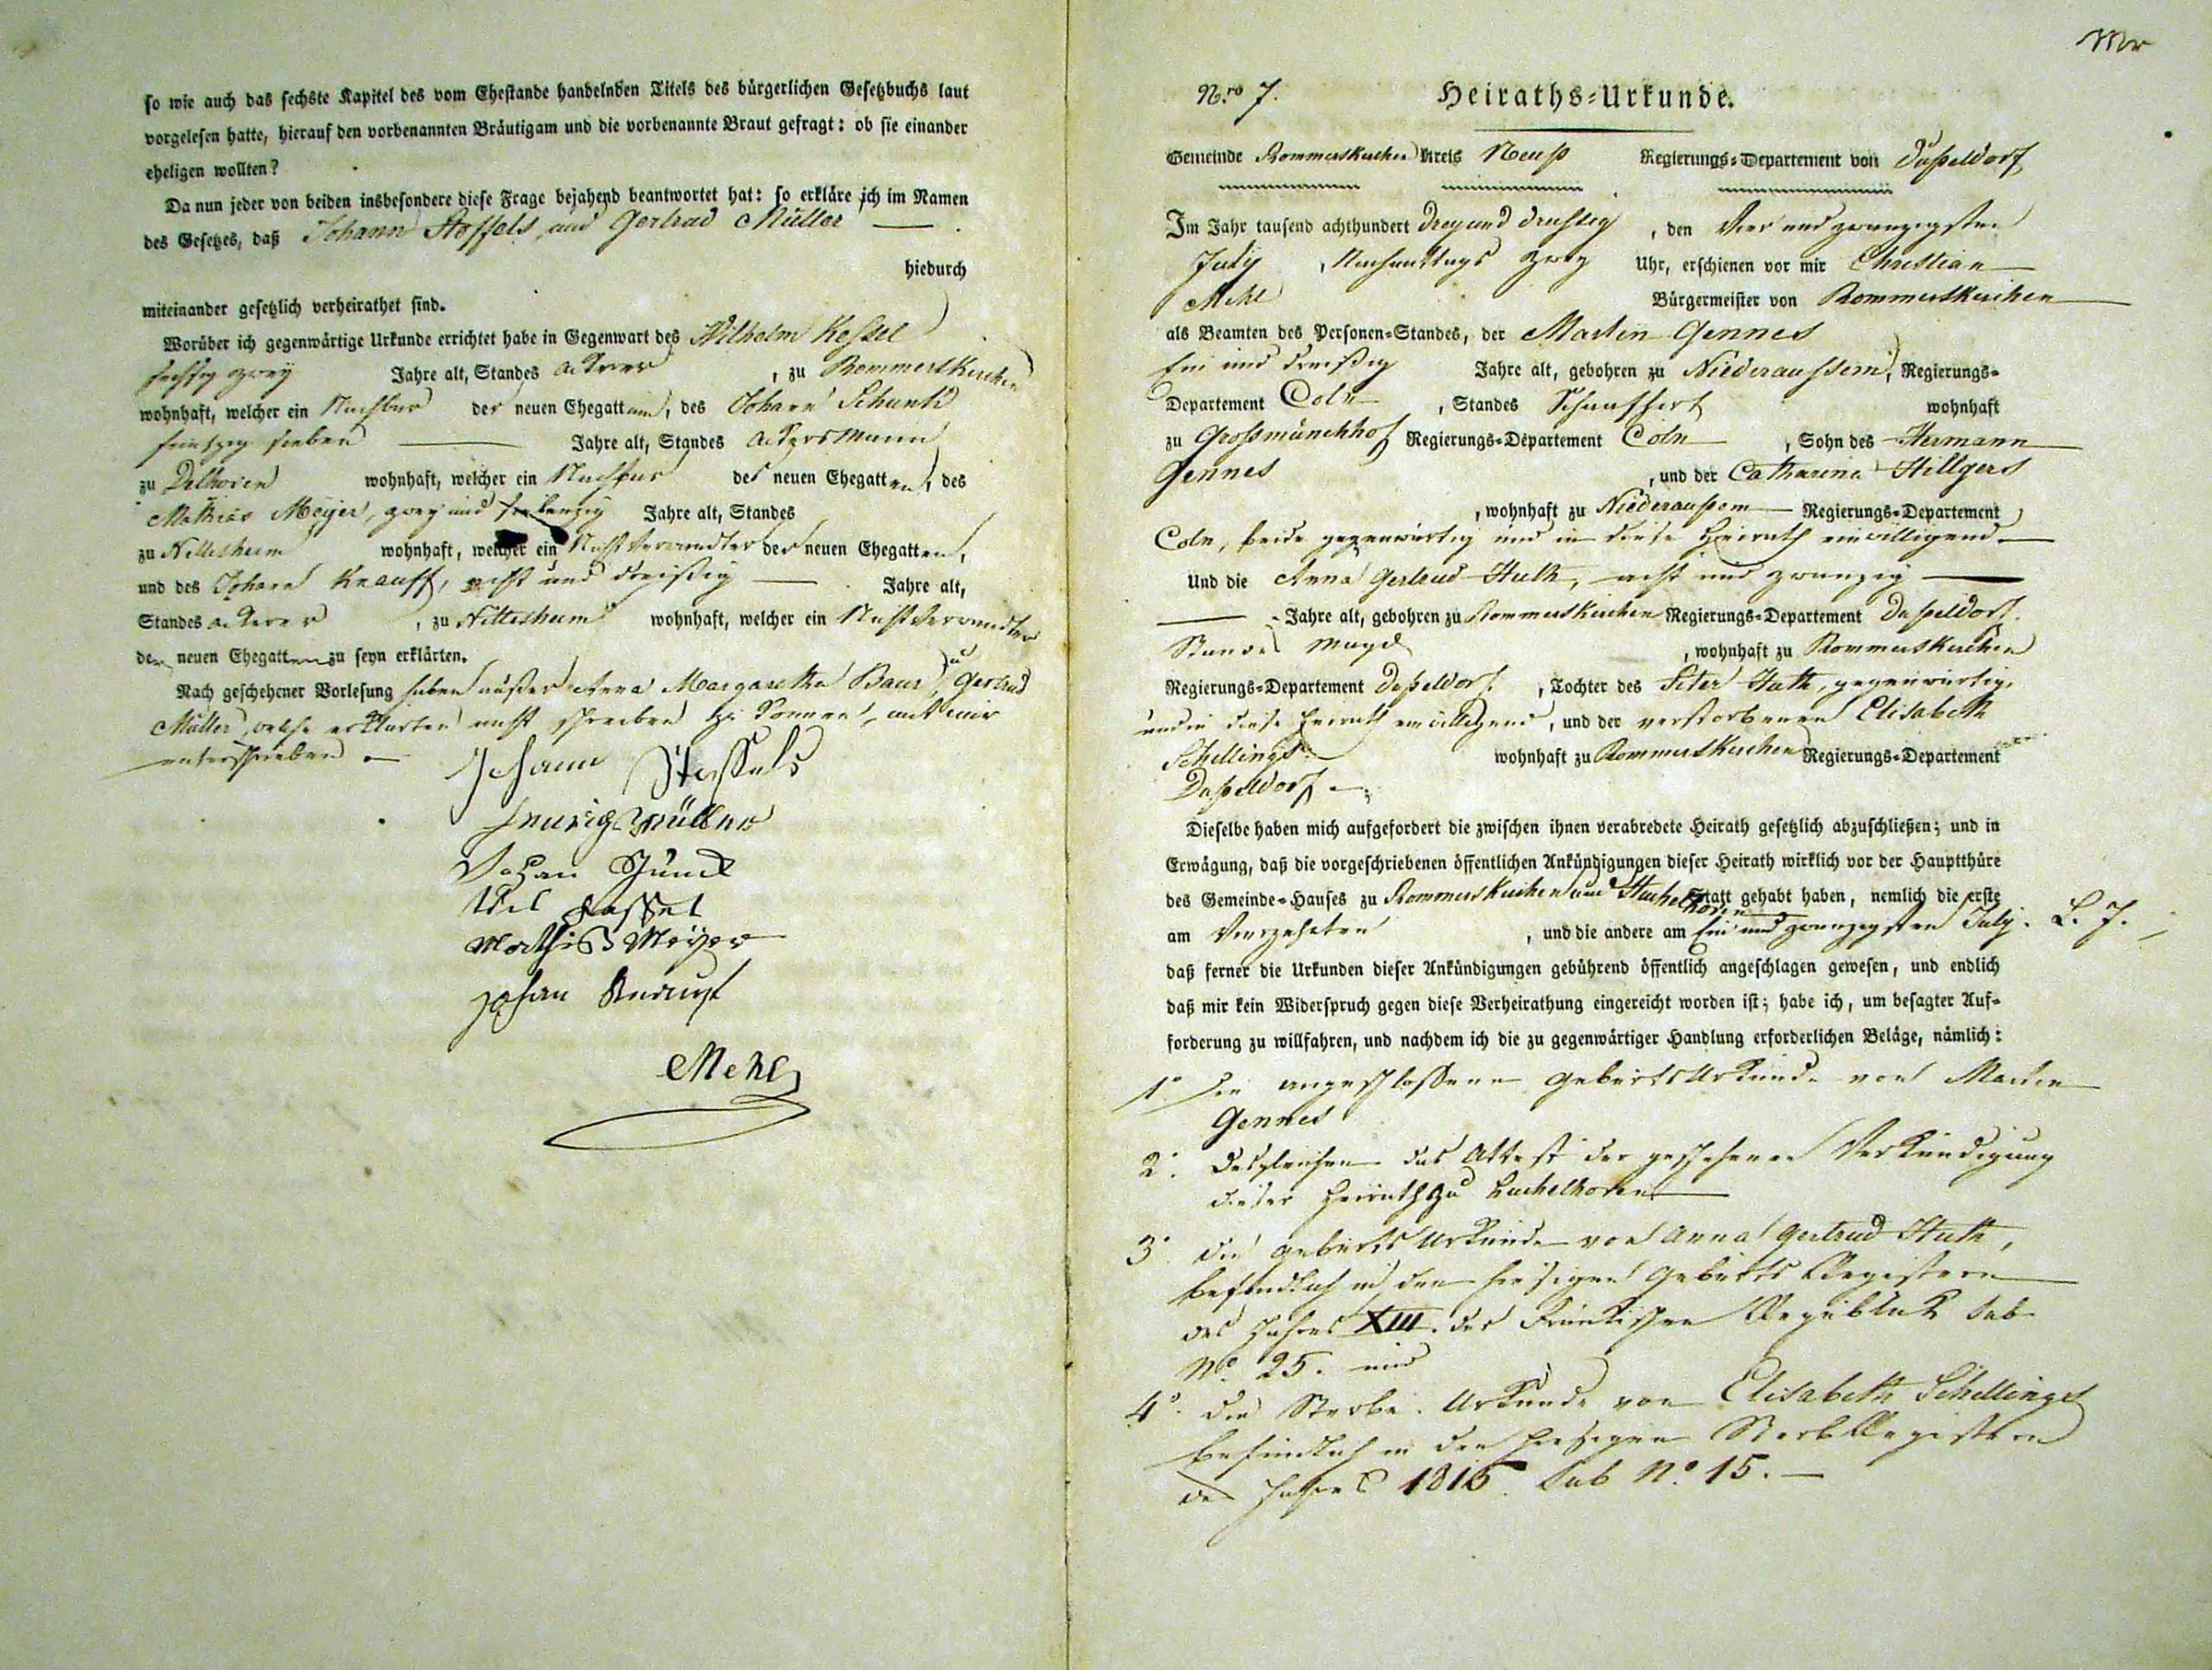 so wie auch das sechste Kapitel des vom Ehestande handelnden Titels des bürgerlichen Gesetzbuchs laut
vorgelesen hatte, hierauf den vorbenannten Bräutigam und die vorbenannte Braut gefragt: ob sie einander
eheligen wollten?
Da nun jeder von beiden insbesondere diese Frage bejahend beantwortet hat: so erkläre ich im Namen
des Gesetzes, daß Johann Stoffels und Gertrud Müller
hiedurch
miteinander gesetzlich verheirathet sind.
Worüber ich gegenwärtige Urkunde errichtet habe in Gegenwart des Wilhelm Kessel
sechszig zwey Jahre alt, Standes Ackerer, zu Rommerskirchen
wohnhaft, welcher ein Nachbar der neuen Ehegatten, des Johann Schunk
sieben Jahre alt, Standes Ackersmann
zu Delhoven wohnhaft, welcher ein Nachbar der neuen Ehegatten, des
Mathias Meyer, zwey und siebenzig Jahre alt, Standes
zu Nettesheim wohnhaft, welcher ein Nichtverwandter der neuen Ehegatten,
und des Johann Knauff, acht und dreißig Jahre alt,
Standes Ackerer, zu Nettesheim wohnhaft, welcher ein Nichtverwandter
der neuen Ehegatten zu seyn erklärten.
Nach geschehener Vorlesung haben außer Anna Margaretha Baur, und Gertrud
Müller, welche erklärten nicht schreiben zu können, mit mir
unterschrieben
Johann Stoffels
Henrich Müller
Johan Schunck
Wil Kessel
Mathis Meyer
Johan Knauf
Mehl
N.ro 7.
Heiraths-Urkunde.
Gemeinde Rommerskirchen Kreis Neuß Regierungs-Departement von Düßeldorf
Im Jahr tausend achthundert drey und dreißig, den vier und zwanzigsten
July, Nachmittags zwey Uhr, erschienen vor mir Christian
Mehl Bürgermeister von Rommerskirchen
als Beamten des Personen-Standes, der Martin Gennes
Ein und dreißig Jahre alt, gebohren zu Niederaussem, Regierungs-
Departement Coln, Standes wohnhaft
zu Grossmünchhof Regierungs-Departement Cöln, Sohn des Hermann
Gennes, und der Catharina Hillgers
, wohnhaft zu Niederaußem Regierungs-Departement
Coln, beide gegenwärtig und in diese Heirath einwilligend
Und die Anna Gertrud Huth, acht und zwanzig
Jahre alt, gebohren zu Rommerskirchen Regierungs-Departement Düßeldorf
Standes Magd, wohnhaft zu Rommerskirchen
Regierungs-Departement Düßeldorf, Tochter des Peter Huth, gegenwärtig,
und in diese Heirath einwilligend, und der verstorbenen Elisabeth
Schellings wohnhaft zu Rommerskirchen Regierungs-Departement
Düßeldorf
Dieselbe haben mich aufgefordert die zwischen ihnen verabredete Heirath gesetzlich abzuschließen; und in
Erwägung, daß die vorgeschriebenen öffentlichen Ankündigungen dieser Heirath wirklich vor der Hauptthüre
des Gemeinde-Hauses zu Rommerskirchen und statt gehabt haben, nemlich die erste
am vierzehnten, und die andere am Ein und zwanzigsten July l. J.
daß ferner die Urkunden dieser Ankündigungen gebührend öffentlich angeschlagen gewesen, und endlich
daß mir kein Widerspruch gegen diese Verheirathung eingereicht worden ist; habe ich, um besagter Auf-
forderung zu willfahren, und nachdem ich die zu gegenwärtiger Handlung erforderlichen Beläge, nämlich:
1.° Die angeschlossene Geburts Urkunde von Martin
Gennes
2.° Desgleichen das Attest der geschehenen Verkündigung
dieser Heirath zu
3.° Die Geburts Urkunde von Anna Gertrud Huth,
befindlich in den hiesigen Geburts Registern
des Jahres XIII. der Fränkischen Republick sub
N.° 25. und
4.° Die Sterbe-Urkunde von Elisabeth Schellings
befindlich in den hiesigen Sterb Registern
des Jahres 1815. sub N.° 15.